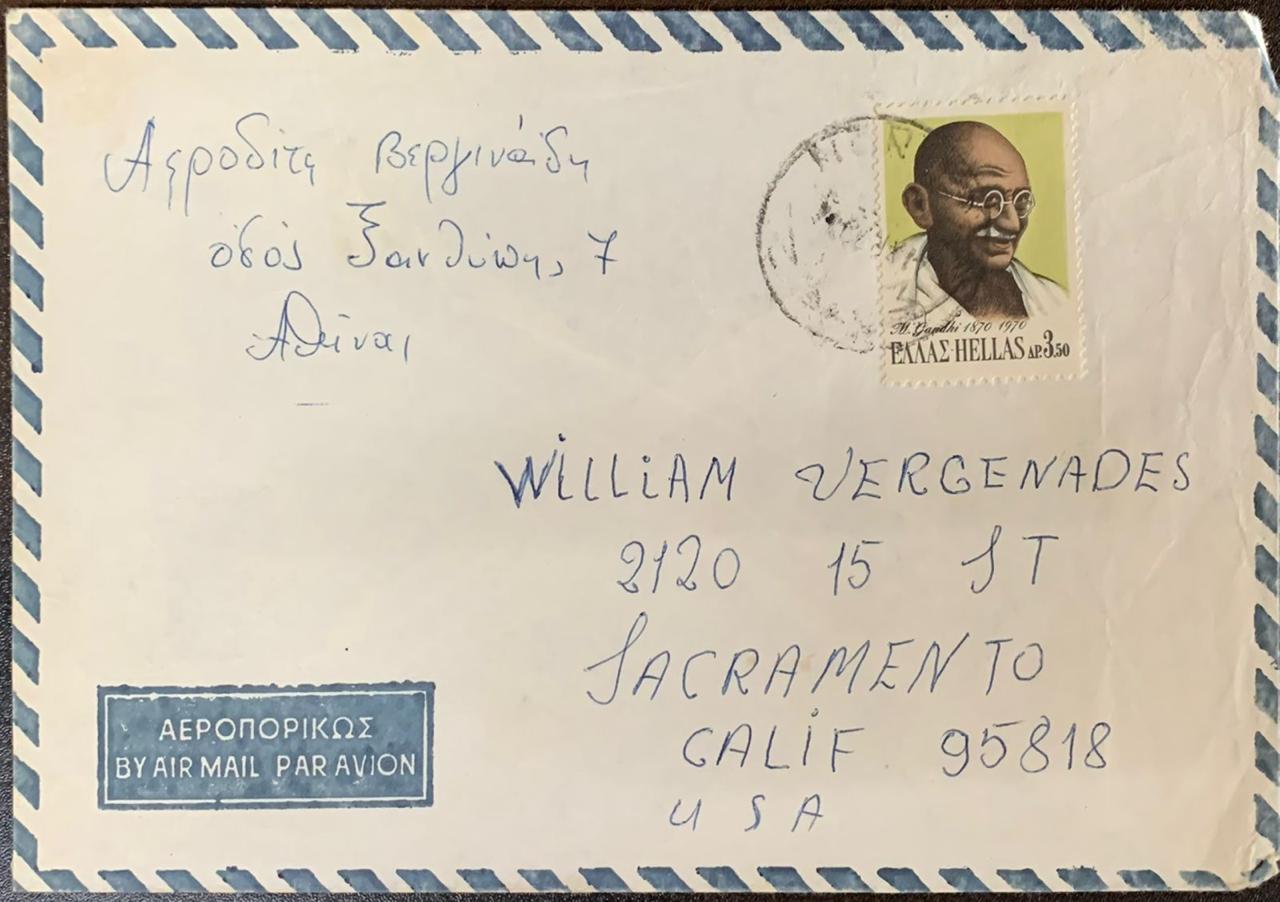 Αφροδίτη Βεργινάδη
οδός Ξανθίππης 7
Αθήναι
M. Gandhi 1870 1970
ΕΛΛΑΣ·HELLAS ΔΡ. 3.50
WiLLiAM VERGENADES
2120 15 ST
SACRAMENTO
CALiF 95818
U S A
ΑΕΡΟΠΟΡΙΚΩΣ
BY AIR MAIL PAR AVION